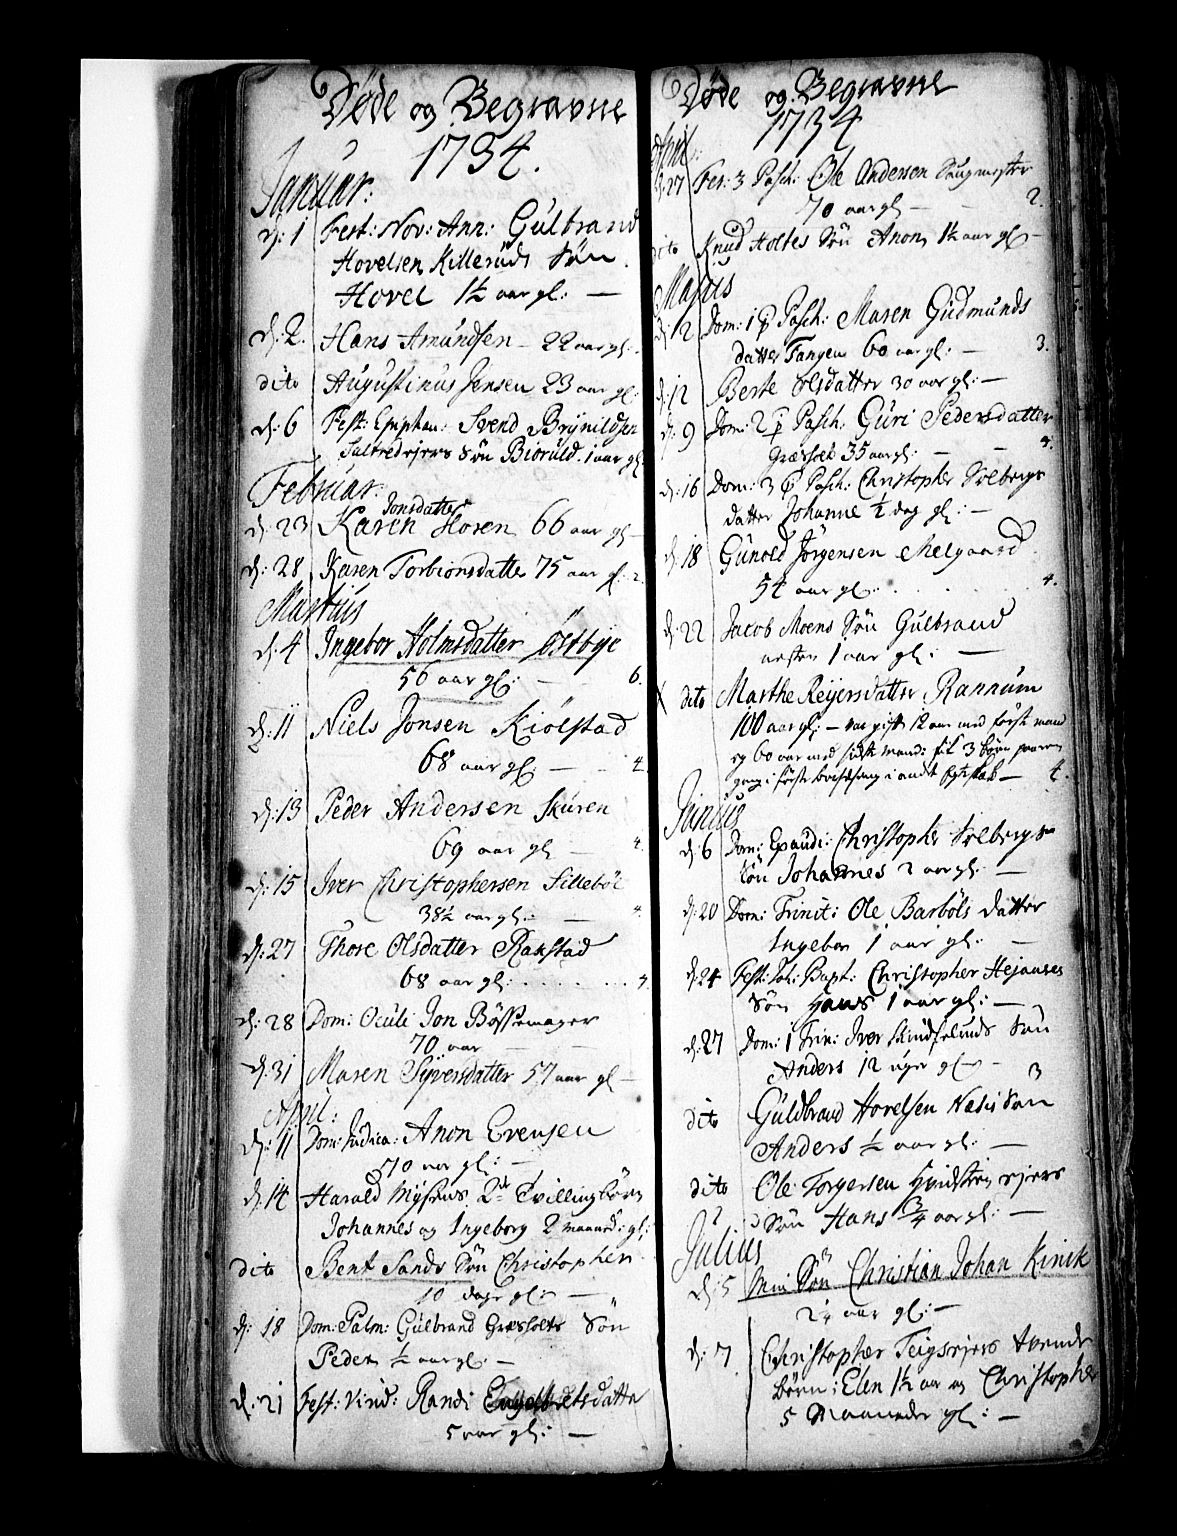 Døde og Begravne
1734.
Januar:
d: 1 Fest: Nov: Ann: Gulbrand
Hovelsen Killeruds Søn
Hovel 1½ aar gl: —
d: 2. Hans Amundsen — 22 aar gl:
dito Augustinus Jensen 23 aar gl:
d: 6 Fest: Epiphan: Svend Brynildsen
Saltredejers Søn Biøruld. 1 aar gl
Februar:
Jonsdatter
d: 23 Karen Horen 66 aar gl —
d: 28 Karen Torbiønsdatter 75 aar gl: 2.
Martius
d: 4 Ingebor Holmsdatter Østbye
56 aar gl: — 6.
d: 11 Niels Jonsen Kiølstad
68 aar gl — 4.
d: 13 Peder Andersen Skuren
69 aar gl — 4.
d: 15 Iver Christophersen Sillebøl
38½ aar gl: — 4.
d: 27 Thore Olsdatter Rakstad
68 aar gl: . . . . . . 4.
d: 28 Dom: Oculi Jon Bøssemager
70 aar — —
d: 31 Maren Syversdatter 57 aar gl —
April:
d: 11 Dom: Judica: Anon Evensen
70 aar gl: —
d: 14 Harald Mysens 2de Tvillingbørn
Johannes og Ingeborg 2 maaned: gl:
dito Bent Sands Søn Christopher
10 dage gl: —
d: 18 Dom: Palm: Gulbrand Græsholts Søn
Peder ½ aar gl: —
d: 21 Fest: Virid: Randi Engelbretsdatter
5 aar gl: —
Døde og Begravne
1734
April:
d: 27 Fer: 3 Pasch: Ole Andersen Saugmester
70 aar gl — — 2.
dito Knud Holtes Søn Anon 1½ aar gl —
Majus
d: 2 Dom: 1 p Pasch: Maren Gudmunds
datter Tangen 60 aar gl: — 3.
d: 12 Berte Olsdatter 30 aar gl: —
d: 9 Dom: 2 p Pasch: Guri Pedersdatter
35 aar gl: — — 4.
d: 16 Dom: 3 p Pasch: Christopher Solbergs
datter Johanne ½ dag gl: —
d: 18 Gunold Jørgensen Melgaard
54 aar gl: . . . . . 4.
d: 22 Jacob Moens Søn Gulbrand
næsten 1 aar gl: —
dito Marthe Reyersdatter Rannum
100 aar gl: — var gift 12 aar med første mand
og 60 aar med sidste mand: fik 3 børn
gang i første barselseng i andet Egteskab — 4.
Junius
d: 6 Dom: Exaudi: Christopher Solbergs
Søn Johannes 2 aar gl: —
d: 20 Dom: Trinit: Ole Barbøls datter
Ingebor 1 aar gl: —
d: 24 Fest: Joh: Bapt: Christopher Hejanses
Søn Hans 1 aar gl: —
d: 27 Dom: 1 Trin: Iver Skindpelunds Søn
Anders 12 uger gl — 3
dito Guldbrand Hovelsen Næsis Søn
Anders ½ aar gl: —
dito Ole Torgersen Hvidsten ejers
Søn Hans ¾ aar gl: —
Julius
d: 5 Min Søn Christian Johan Kinik
2¼ aar gl: —
d: 7 Christopher Teigsejers tvende
børn: Elen 1½ aar og Christopher
5 Maaneder gl: —